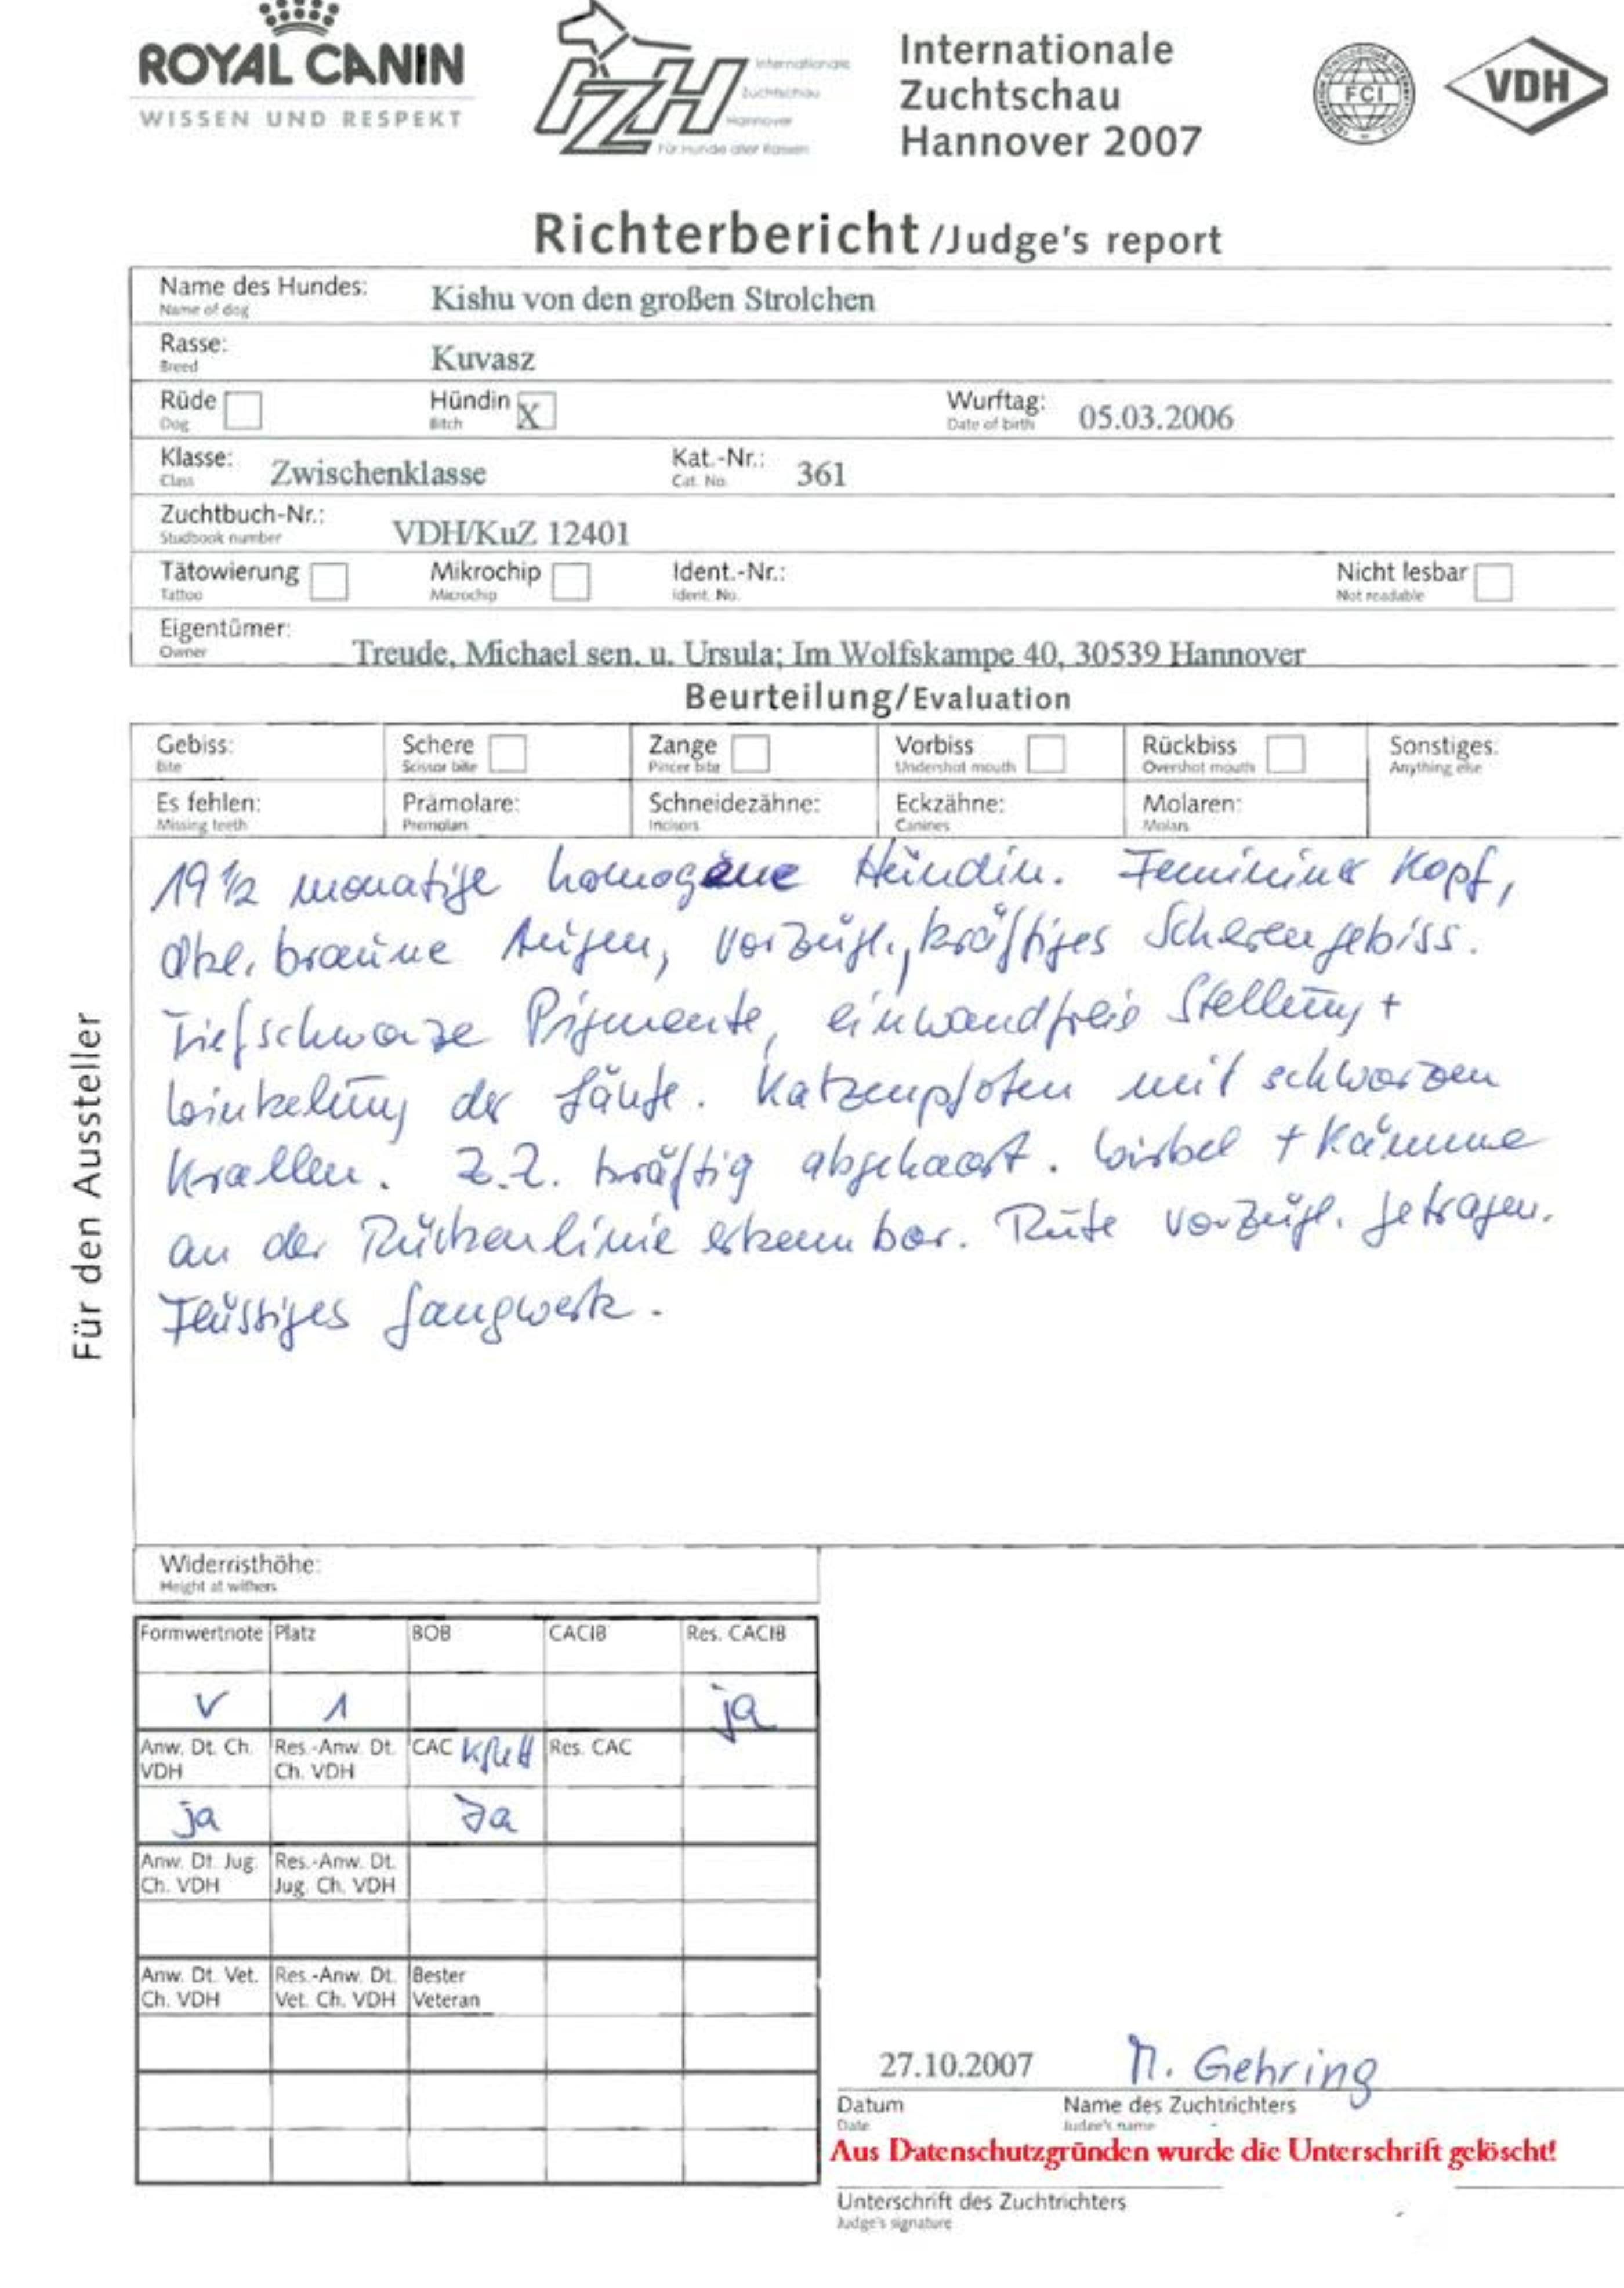 ROYAL CANIN
WISSEN UND RESPEKT
IZH
Internationale
Zuchtschau
Hannover
Für Hunde aller Rassen
Internationale
Zuchtschau
Hannover 2007
FCI
VDH
Richterbericht/Judge's report
Name des Hundes: Kishu von den großen Strolchen
Name of dog
Rasse: Kuvasz
Breed
Rüde Hündin X Wurftag: 05.03.2006
Dog Bitch Date of birth
Klasse: Zwischenklasse Kat.-Nr.: 361
Class Cat. No.
Zuchtbuch-Nr.: VDH/KuZ 12401
Studbook number
Tätowierung Mikrochip Ident.-Nr.: Nicht lesbar
Tattoo Microchip Ident. No. Not readable
Eigentümer: Treude, Michael sen. u. Ursula; Im Wolfskampe 40, 30539 Hannover
Owner
Beurteilung/Evaluation
Gebiss: Schere Zange Vorbiss Rückbiss Sonstiges:
Bite Scissor bite Pincer bite Undershot mouth Overshot mouth Anything else
Es fehlen: Prämolare: Schneidezähne: Eckzähne: Molaren:
Missing teeth Premolars Incisors Canines Molars
19 ½ monatige homogene Hündin. Femininer Kopf,
dkl. braune Augen, vorzügl., kräftiges Scherengebiss.
Tiefschwarze Pigmente, einwandfreie Stellung +
Winkelung der Läufe. Katzenpfoten mit schwarzen
Krallen. Z.Z. kräftig abgehaart. Wirbel + Kämme
an der Rückenlinie erkennbar. Rute vorzügl. getragen.
Flüssiges Gangwerk.
Für den Aussteller
Widerristhöhe:
Height at withers
Formwertnote Platz BOB CACIB Res. CACIB
V 1 ja
Anw. Dt. Ch. Res.-Anw. Dt. CAC Res. CAC
VDH Ch. VDH
ja Ja
Anw. Dt. Jug. Res.-Anw. Dt.
Ch. VDH Jug. Ch. VDH
Anw. Dt. Vet. Res.-Anw. Dt. Bester
Ch. VDH Vet. Ch. VDH Veteran
27.10.2007 M. Gehring
Datum Name des Zuchtrichters
Date Judge's name
Aus Datenschutzgründen wurde die Unterschrift gelöscht!
Unterschrift des Zuchtrichters
Judge's signature